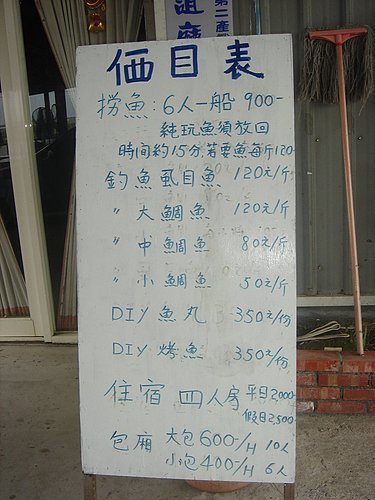 第二產
道
價目表
捞魚：6人一船 900-
純玩魚須放回
時間約15分,若要魚每斤120-
釣魚虱目魚 120元/斤
〃 大鯛魚 120元/斤
〃 中鯛魚 80元/斤
〃 小鯛魚 50元/斤
DIY魚丸 350元/份
DIY烤魚 350元/份
住宿 四人房 平日2,000
假日2,500
包廂 大包600-/H 10人
小包400-/H 6人